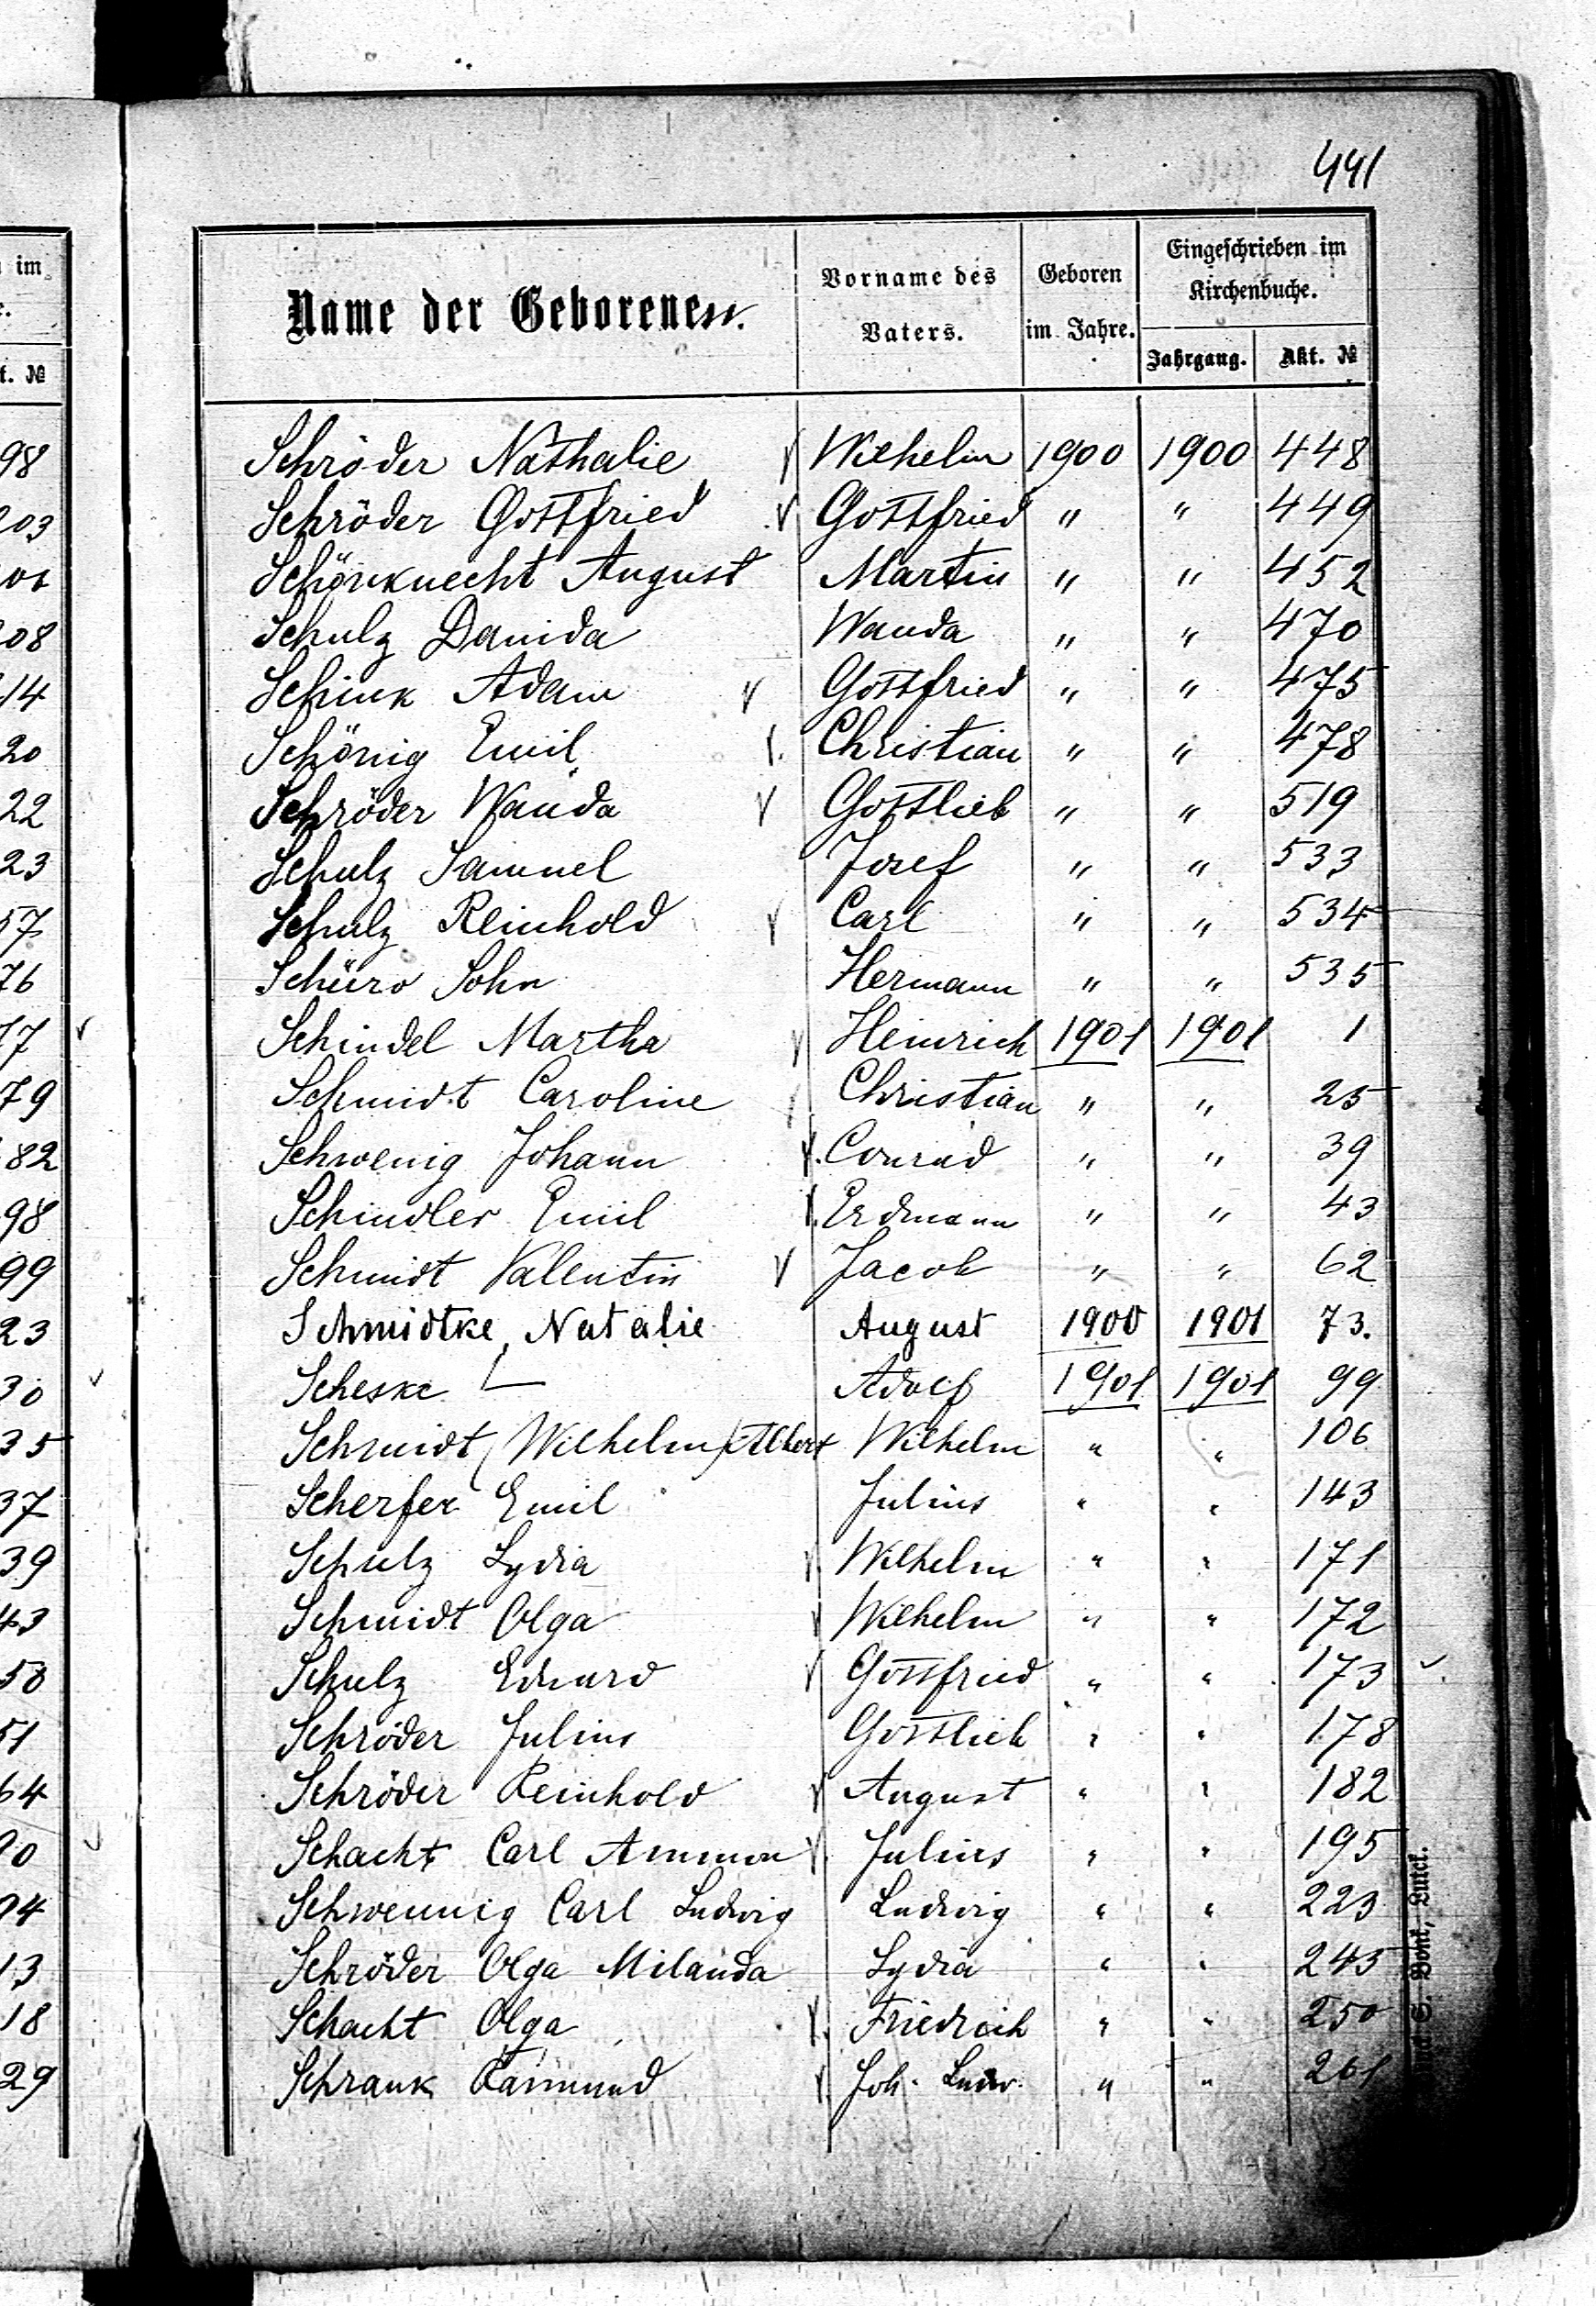 441
im
Name der Geborenen.
Vorname des Vaters.
Geboren im Jahre.
Eingeschrieben im Kirchenbuche.
Jahrgang.
Akt. №
t. №
98 Schröder Nathalie Wilhelm 1900 1900 448
203 Schröder Gottfried Gottfried " " 449
Schönknecht August Martin " " 452
208 Schulz Danida Wanda " " 470
14 Schink Adam Gottfried " " 475
20 Schönig Emil Christian " " 478
22 Schröder Wanda Gottlieb " " 519
23 Schulz Samuel Josef " " 533
57 Schulz Reinhold Carl " " 534
76 Schüro Sohn Hermann " " 535
77 Schindel Martha Heinrich 1901 1901 1
79 Schmidt Caroline Christian " " 25
82 Schwenig Johann Conrad " " 39
98 Schindler Emil Erdmann " " 43
99 Schmidt Valentin Jacob " " 62
23 Schmidtke, Natalie August 1900 1901 73.
30 Scheske — Adolf 1901 1901 99
35 Schmidt (Wilhelm) Albert Wilhelm " " 106
37 Scherfer Emil Julius " " 143
39 Schulz Lydia Wilhelm " " 171
43 Schmidt Olga Wilhelm " " 172
50 Schulz Eduard Gottfried " " 173
51 Schröder Julius Gottlieb " " 178
64 Schröder Reinhold August " " 182
90 Schacht Carl Ammon Julius " " 195
94 Schwennig Carl Ludwig Ludwig " " 223
13 Schröder Olga Milanda Lydia " " 245
18 Schacht Olga Friedrich " " 250
29 Schrank Joh. Ludw. " " 261
S. Bont, Luck.